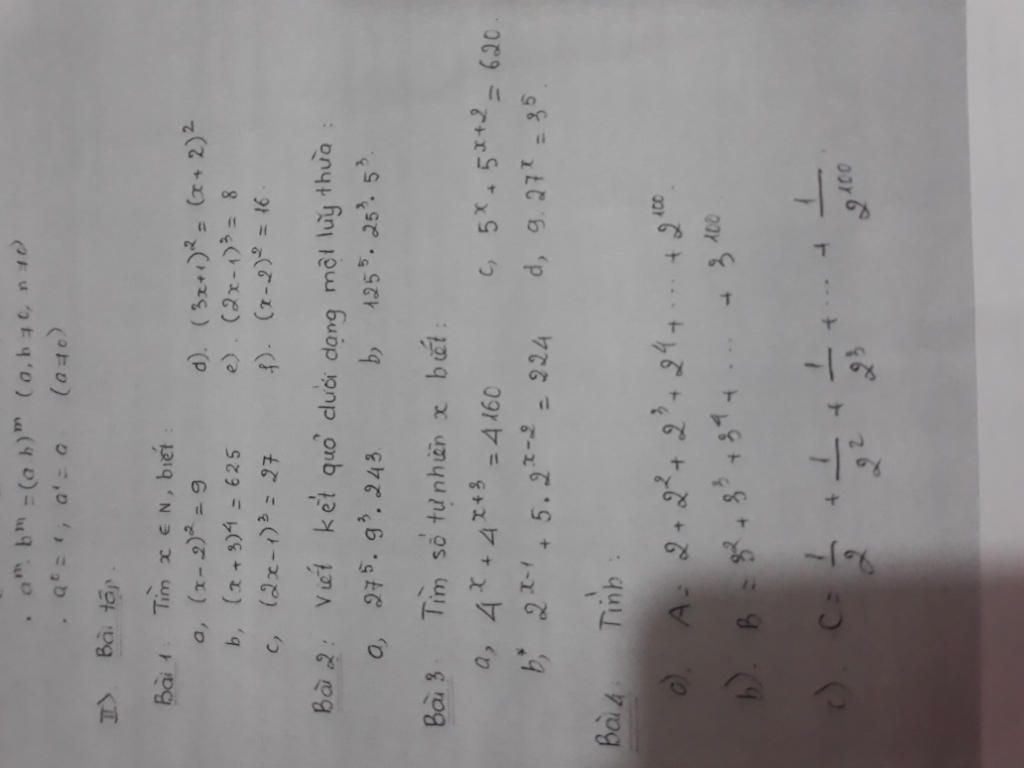 . aᵐ. bᵐ = (a b)ᵐ (a, b ≠ 0, n ≠ 0)
. a⁰ = 1, a¹ = a (a ≠ 0)
II). Bài tập.
Bài 1: Tìm x ∈ N, biết:
a, (x-2)² = 9 d). (3x+1)² = (x+2)²
b, (x+3)⁴ = 625 e). (2x-1)³ = 8
c, (2x-1)³ = 27 f). (x-2)² = 16.
Bài 2: Viết kết quả dưới dạng một lũy thừa:
a, 27⁵. 9³. 243. b, 125⁵. 25³. 5³.
Bài 3. Tìm số tự nhiên x biết:
a, 4ˣ + 4ˣ⁺³ = 4160 c, 5ˣ + 5ˣ⁺² = 620.
b,* 2ˣ⁻¹ + 5. 2ˣ⁻² = 224 d, 9. 27ˣ = 3⁵.
Bài 4. Tính:
a). A = 2 + 2² + 2³ + 2⁴ + .... + 2¹⁰⁰.
b). B = 3² + 3³ + 3⁴ + .... + 3¹⁰⁰
c). C = 1/2 + 1/2² + 1/2³ + ... + 1/2¹⁰⁰